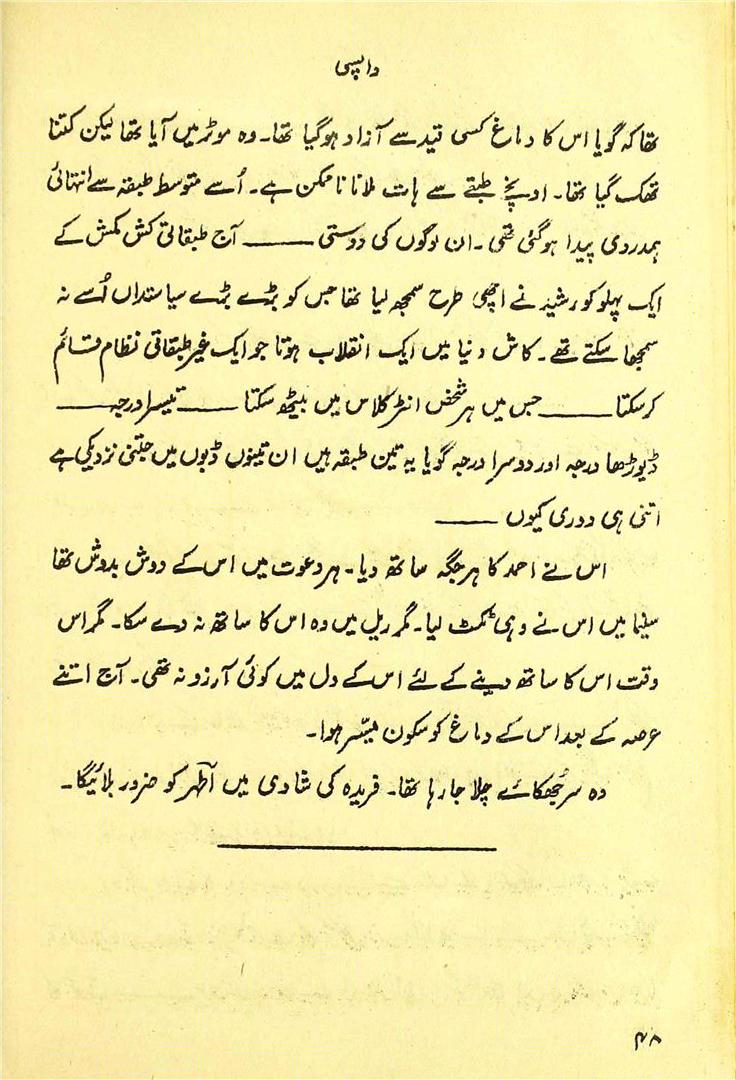 واپسی
تھا کہ گویا اس کا دماغ کسی قید سے آزاد ہوگیا تھا۔ وہ موٹر میں آیا تھا لیکن کتنا
تھک گیا تھا۔ اونچے طبقے سے ہات ملانا ناممکن ہے۔ اُسے متوسط طبقہ سے انتہائی
ہمدردی پیدا ہوگئی تھی۔ ان لوگوں کی دوستی ——— آج طبقاتی کش مکش کے
ایک پہلو کو رشید نے اچھی طرح سمجھ لیا تھا جس کو بڑے بڑے سیاستداں اُسے نہ
سمجھا سکتے تھے۔ کاش دنیا میں ایک انقلاب ہوتا جو ایک غیر طبقاتی نظام قائم
کرسکتا ——— جس میں ہر شخص انٹر کلاس میں بیٹھ سکتا ——— تیسرا درجہ ———
ڈیوڑھا درجہ اور دوسرا درجہ گویا یہ تین طبقہ ہیں ان تینوں ڈبوں میں جتنی نزدیکی ہے
اتنی ہی دوری کیوں ———
اس نے احمد کا ہر جگہ ساتھ دیا۔ ہر دعوت میں اس کے دوش بدوش تھا
سینما میں اس نے وہی ٹکٹ لیا۔ مگر ریل میں وہ اس کا ساتھ نہ دے سکا۔ مگر اس
وقت اس کا ساتھ دینے کے لئے اس کے دل میں کوئی آرزو نہ تھی۔ آج اتنے
عرصہ کے بعد اس کے دماغ کو سکون میسّر ہوا۔
وہ سر جُھکائے چلا جا رہا تھا۔ فریدہ کی شادی میں اظہر کو ضرور بلائیگا۔
۴۸